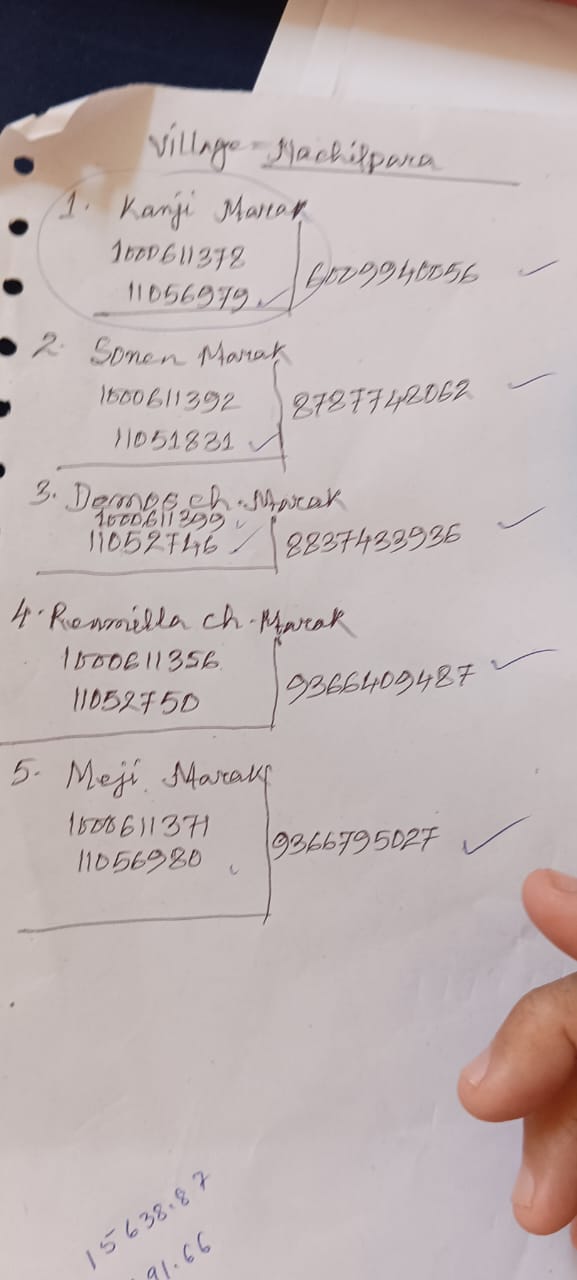 Village - Hachilpara
1. Kanji Marak
1000611378
11056979
6009940056
2. Sonen Marak
1000611392
11051831
8787742062
3. Demos ch. Marak
1000611399
11052746
8837433936
4. Renmilla ch. Marak
1000611356
11052750
9366409487
5. Meji Marak
1000611371
11056980
9366795027
15638.87
91.66